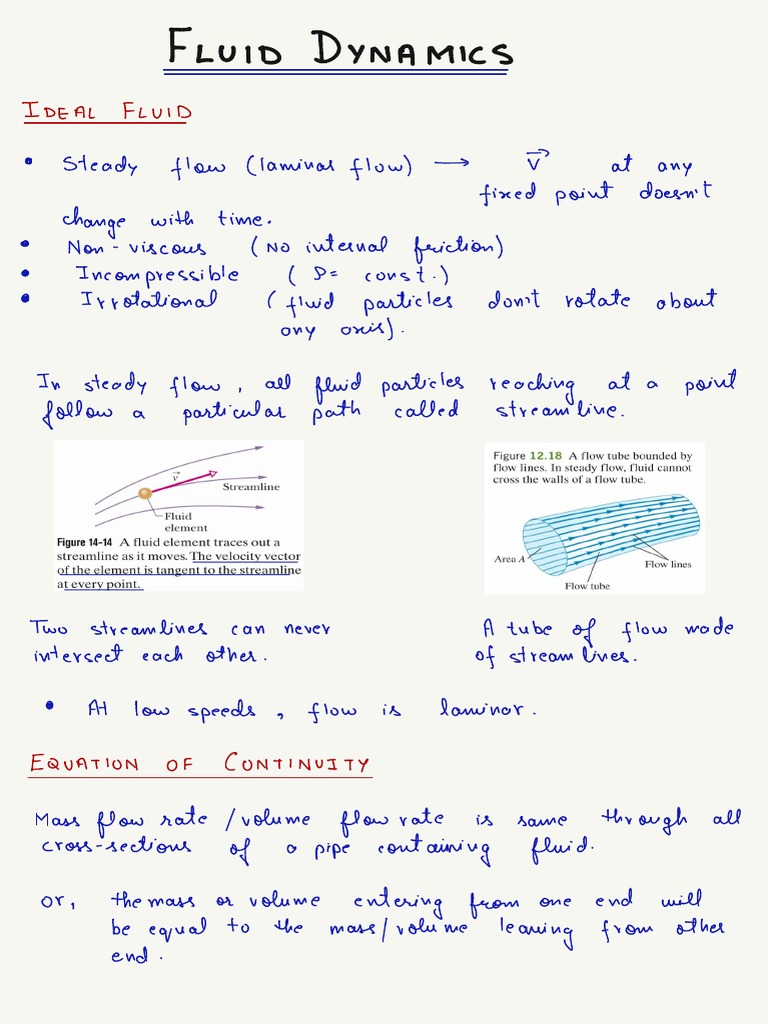 FLUID DYNAMICS
IDEAL FLUID
• Steady flow (laminar flow) → v⃗ at any
fixed point doesn't
change with time.
• Non-viscous (No internal friction)
• Incompressible (ρ = const.)
• Irrotational (fluid particles don't rotate about
any axis).
In steady flow, all fluid particles reaching at a point
follow a particular path called streamline.
v⃗
Streamline
Fluid
element
Figure 14-14 A fluid element traces out a
streamline as it moves. The velocity vector
of the element is tangent to the streamline
at every point.
Figure 12.18 A flow tube bounded by
flow lines. In steady flow, fluid cannot
cross the walls of a flow tube.
Area A
Flow lines
Flow tube
Two streamlines can never
intersect each other.
A tube of flow made
of streamlines.
• At low speeds, flow is laminar.
EQUATION OF CONTINUITY
Mass flow rate /volume flow rate is same through all
cross-sections of a pipe containing fluid.
or, the mass or volume entering from one end will
be equal to the mass/volume leaving from other
end.